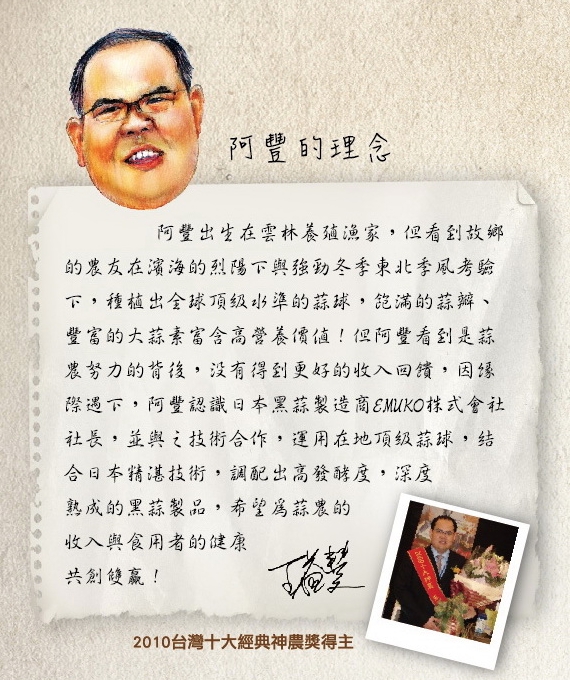 阿豐的理念
阿豐出生在雲林養殖漁家，但看到故鄉
的農友在濱海的烈陽下與強勁冬季東北季風考驗
下，種植出全球頂級水準的蒜球，飽滿的蒜瓣、
豐富的大蒜素富含高營養價值！但阿豐看到是蒜
農努力的背後，沒有得到更好的收入回饋，因緣
際遇下，阿豐認識日本黑蒜製造商EMUKO株式會社
社長，並與之技術合作，運用在地頂級蒜球，結
合日本精湛技術，調配出高發酵度，深度
熟成的黑蒜製品，希望為蒜農的
收入與食用者的健康
共創雙贏！
2010台灣十大經典神農獎得主